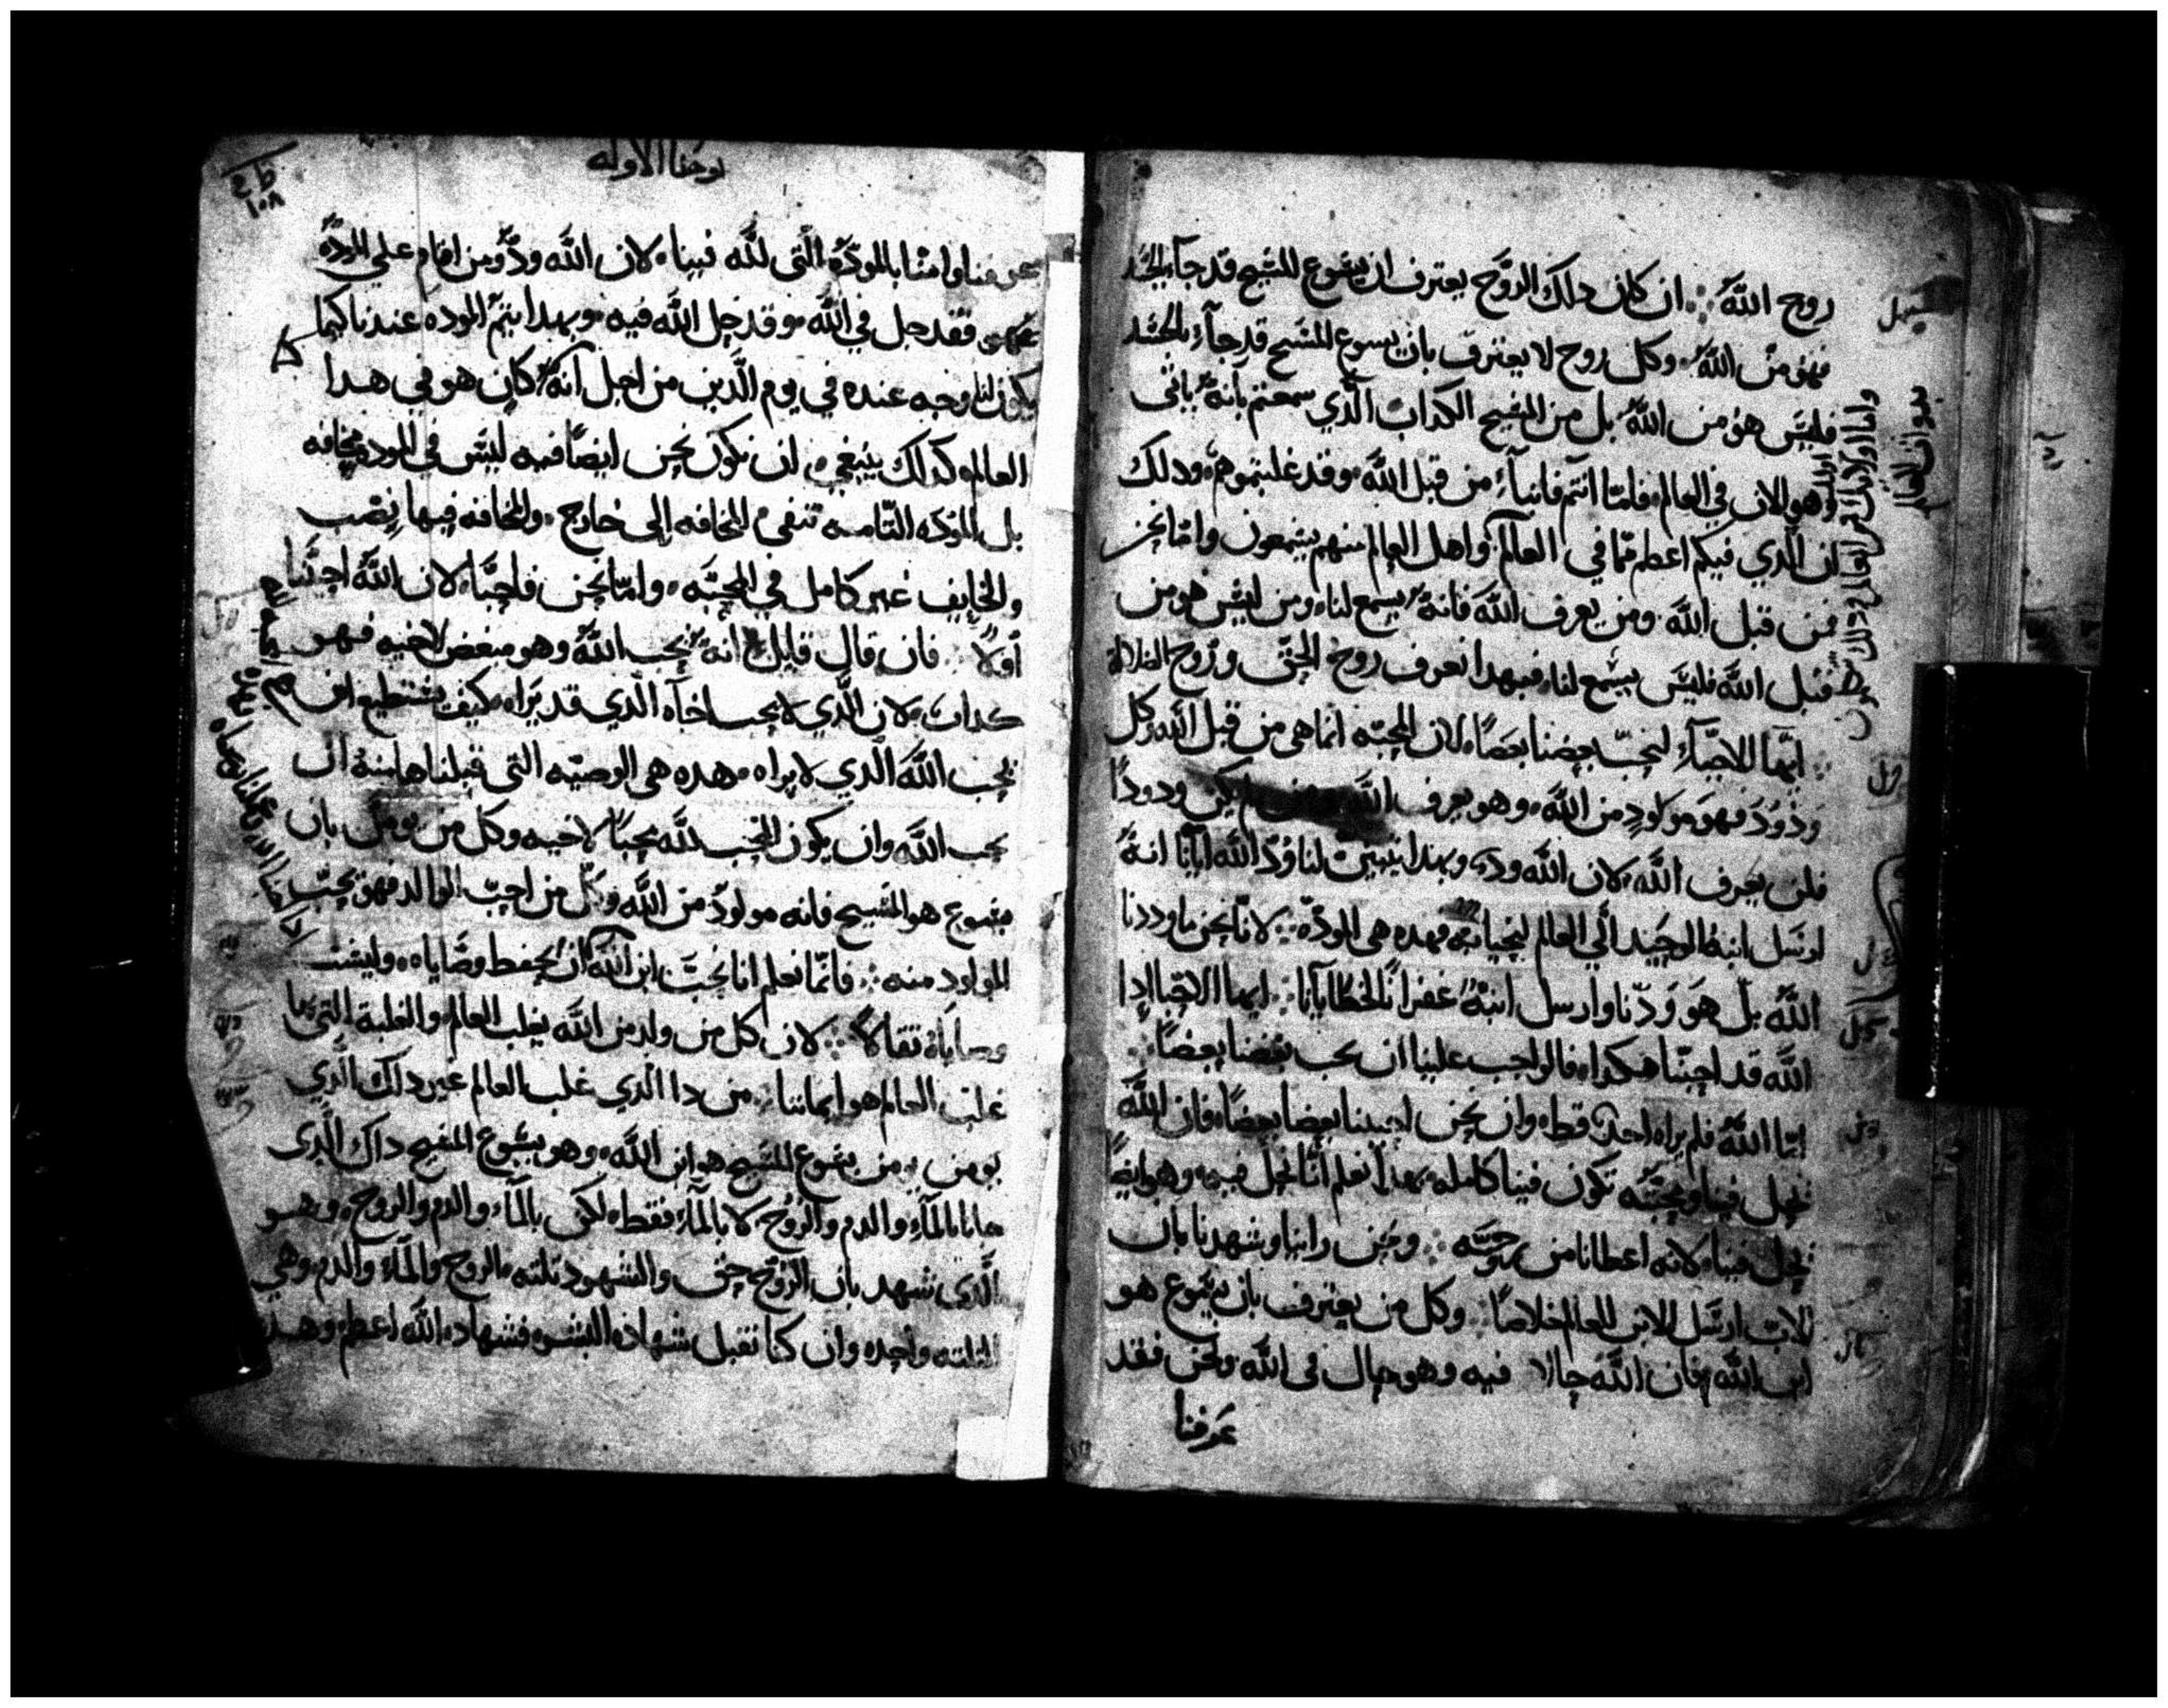 روح الله ان كان دلك الروح يعترف ان يشوع المسيح قد جآء بالجسد
فهو من الله وكل روح لا يعترف بان يسوع المسيح قد جآء بالجسد
فليس هو من الله بل من المسيح الكداب الدي سمعتم بانه ياتى
وهو الان في العالم فاما انتم فابنآء من قبل الله وقد غلبتموهم ودلك
ان الدي فيكم اعظم مما في العالم واهل العالم منهم يسمعون واما نحن
فمن قبل الله ومن يعرف الله فانه يسمع لنا ومن ليس هو من
قبل الله فليس يسمع لنا فبهدا نعرف روح الحق وروح الضلالة
ايها الاحبآء لنحب بعضنا بعضا لان المحبه انما هى من قبل الله وكل
ودود فهو مولود من الله وهو يعرف الله يكن ودودا
فلن يعرف الله لان الله ود وبهدا تبين لنا ود الله ايانا انه
ارسل ابنه الوحيد الي العالم لنحيا به فهده هى المودة لانا نحن ما وددنا
الله بل هو ودنا وارسل ابنه غفرانا لخطايانا ايها الاحبا ادا
الله قد احبنا هكدا فالواجب علينا ان نحب بعضنا بعضا
اما الله فلم يراه احد قط وان نحن احببنا بعضنا بعضا فان الله
يحل فينا ومحبته تكون فينا كامله بهدا نعلم انا نحل فيه وهو ايضا
يحل فينا لانه اعطانا من روحه ونحن راينا وشهدنا بان
الاب ارسل الابن للعالم خلاصا وكل من يعترف بان يشوع هو
ابن الله فان الله حالا فيه وهو حال فى الله ونحن فقد
عرفنا
يوحنا الاوله
عرفنا وامنا بالمودة التى لله فينا لان الله ود ومن اقام علي المودة
فقد حل في الله وقد حل الله فيه وبهدا يتم الموده عندنا كيما
يكون لنا وجه عنده في يوم الدين من اجل انه كان هو في هدا
العالم كدلك ينبغي ان نكون نحن ايضا فيه ليس في الموده مخافه
بل الموده التامه تنفى المخافه الى خارج والمخافه فيها نصب
والخايف غير كامل في المحبه واما نحن فاحبنا لان الله احبنا
اولا فان قال قايل انه يحب الله وهو مبغض لاخيه فهو
كداب لان الدي لا يحب اخآه الدي قد يراه كيف يستطيع ان
يحب الله الدي لا يراه وهده هى الوصيه التى قبلناها منه ان
نحب الله وان يكون المحب لله محبا لاخيه وكل من يومن بان
يشوع هو المسيح فانه مولود من الله وكل من احب الوالد فهو يحب
المولود منه فانما نعلم انا نحب ابن الله ان نحفظ وصاياه وليست
وصاياه ثقالا لان كل من ولد من الله يغلب العالم والغلبة التى بها
غلب العالم هو ايماننا من دا الدي غلب العالم غير داك الدي
يومن يشوع المسيح هو ابن الله وهو يشوع المسيح داك الدى
جانا بالمآء والدم والروح لا بالمآء فقط لكن بالمآء والدم والروح وهو
الدى شهد بان الروح حق والشهود تلته الروح والمآء والدم وهي
التلته واحده وان كنا نقبل شهاده البشر فشهاده الله اعظم وهده